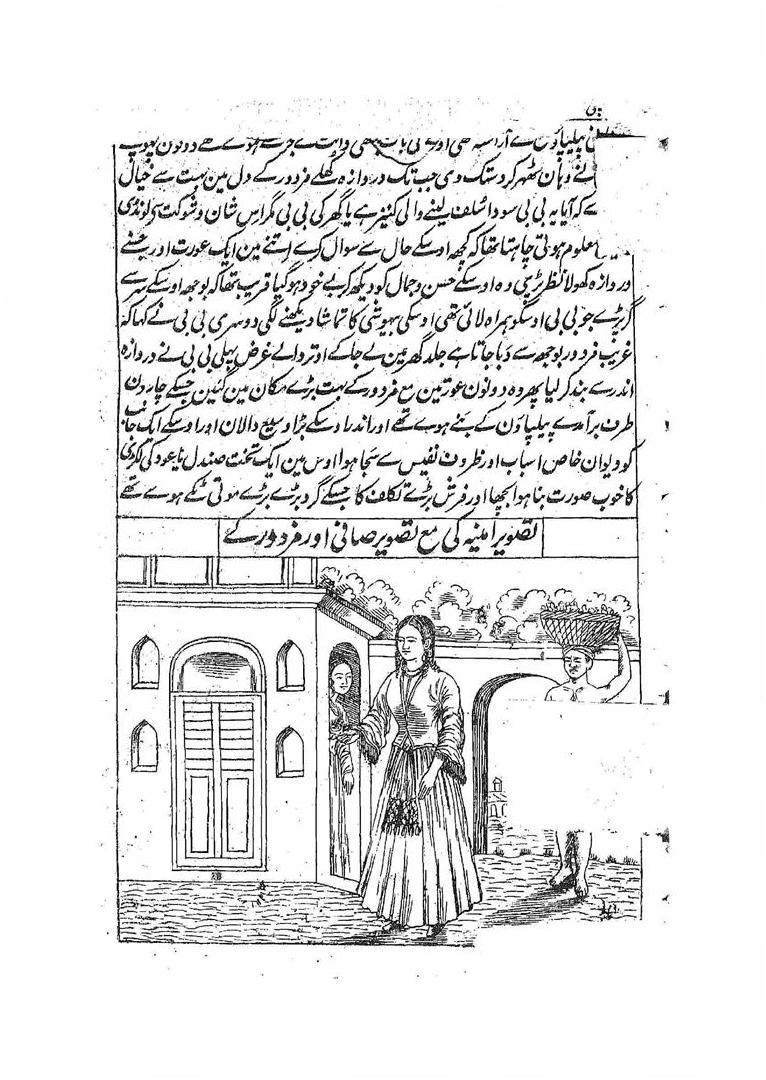 پیلپاؤں سے آراستہ تھی اور
نے وہان ٹھہر کر دستک دی جب تک دروازہ کھلے مزدور کے دل مین بہت سے خیال
ے کہ آیا یہ بی بی سودا سلف لینے والی کنیز ہے یا گھر کی بی بی مگر اس شان و شوکت سے لونڈی
معلوم ہوتی چاہتا تھا کہ کچھ اوسکے حال سے سوال کرے اتنے مین ایک عورت اور جسنے
دروازہ کھولا نظر پڑی وہ اوسکے حسن و جمال کو دیکھ کر بے خود ہو گیا قریب تھا کہ بوجھ اوسکے سر سے
گر پڑے جو بی بی اوسکو ہمراہ لائی تھی اوسکی بیہوشی کا تماشا دیکھنے لگی دوسری بی بی نے کہا کہ
غریب مزدور بوجھ سے دبا جاتا ہے جلد گھر مین لے جا کے اوتروالے غرض پہلی بی بی نے دروازہ
اندر سے بند کر لیا پھر وہ دونون عورتین مع مزدور کے بہت بڑے مکان مین گئین جسکے چارون
طرف برآمدے پیلپاؤن کے بنے ہوے تھے اور اندر اوسکے بڑا وسیع دالان اور اوسکے ایک جانب
کو دیوان خاص اسباب اور ظروف نفیس سے سجا ہوا اوس مین ایک تخت صندل یا عود کی لکڑی
کا خوب صورت بنا ہوا بچھا اور فرش بڑے تکلف کا جسکے گرد بڑے بڑے موتی ٹکے ہوے تھے
تصویر امنیہ کی مع تصویر صافی اور مزدور کے